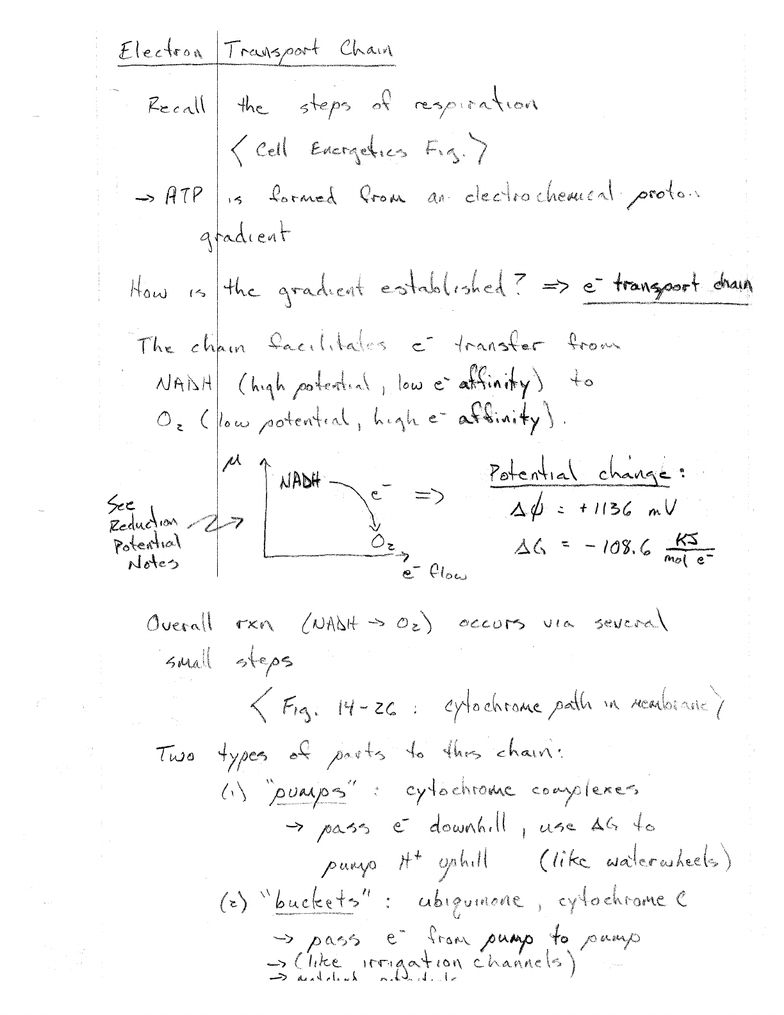 Electron Transport Chain
Recall the steps of respiration
< Cell Energetics Fig. >
→ ATP is formed from an electrochemical proton
gradient
How is the gradient established? ⇒ e⁻ transport chain
The chain facilitates e⁻ transfer from
NADH (high potential, low e⁻ affinity) to
O₂ (low potential, high e⁻ affinity).
μ
NADH e⁻ ⇒
O₂
e⁻ flow
See
Reduction
Potential
Notes
Potential change:
Δϕ = +1136 mV
ΔG = -108.6 KJ/mol e⁻
Overall rxn (NADH → O₂) occurs via several
small steps
< Fig. 14-26 : cytochrome path in membrane >
Two types of parts to this chain:
(1) "pumps" : cytochrome complexes
→ pass e⁻ downhill, use ΔG to
pump H⁺ uphill (like waterwheels)
(2) "buckets" : ubiquinone, cytochrome C
→ pass e⁻ from pump to pump
→ (like irrigation channels)
→